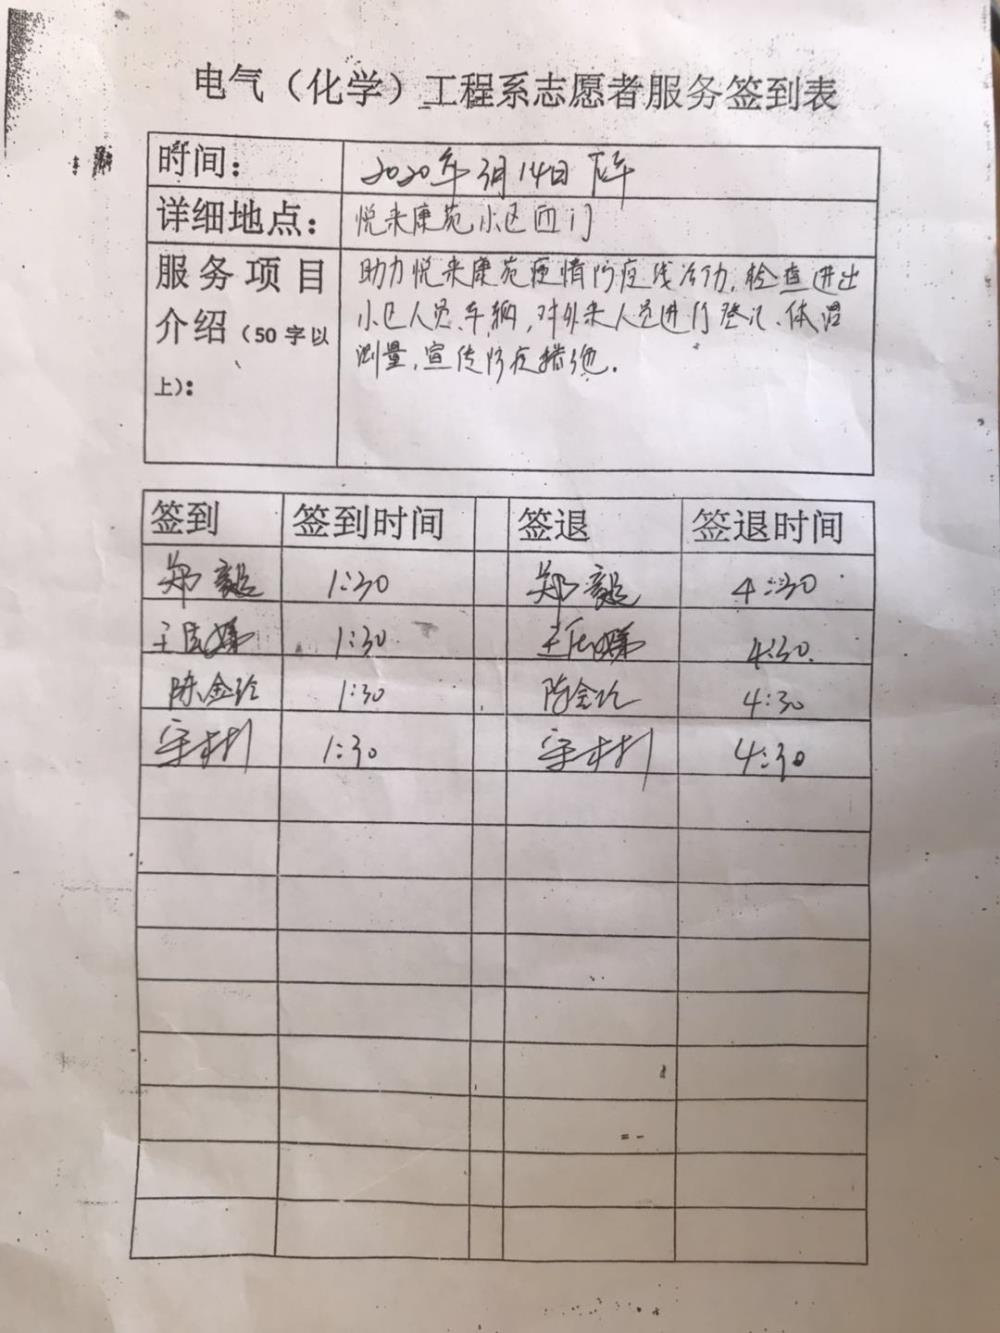 电气（化学）工程系志愿者服务签到表
时间： 2020年3月14日 下午
详细地点： 悦来康苑小区西门
服务项目 助力悦来康苑疫情防疫线活动，检查进出
介绍（50字以 小区人员、车辆，对外来人员进行登记、体温
上）： 测量，宣传防疫措施。
签到 签到时间 签退 签退时间
郑毅 1:30 郑毅 4:30
1:30 4:30
陈金玲 1:30 陈金玲 4:30
1:30 4:30